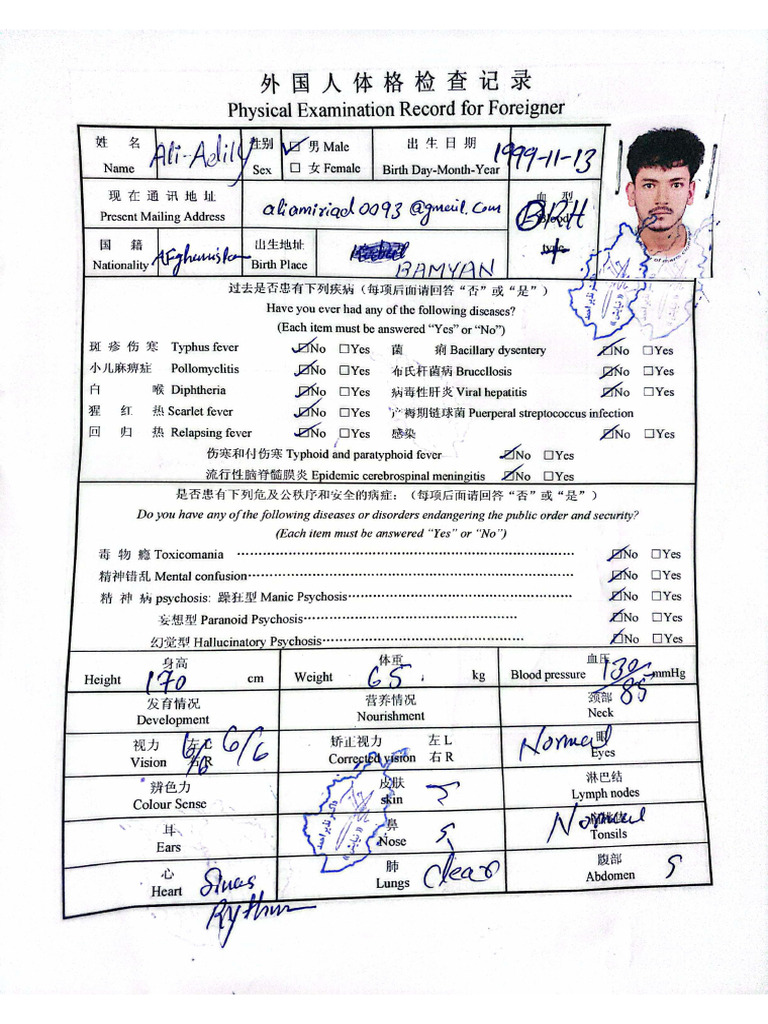 外国人体格检查记录
Physical Examination Record for Foreigner
姓 名 Ali-Adily 性别 ☑ 男 Male 出生日期 1999-11-13
Name Sex ☐ 女 Female Birth Day-Month-Year
现在通讯地址 aliamiriad0093@gmail.com 血 型
Present Mailing Address BRH Blood
国 籍 Afghanistan 出生地址 BAMYAN type +
Nationality Birth Place
过去是否患有下列疾病（每项后面请回答“否”或“是”）
Have you ever had any of the following diseases?
(Each item must be answered “Yes” or “No”)
斑疹伤寒 Typhus fever ☑No ☐Yes 菌 痢 Bacillary dysentery ☑No ☐Yes
小儿麻痹症 Pollomyclitis ☑No ☐Yes 布氏杆菌病 Bruccllosis ☑No ☐Yes
白 喉 Diphtheria ☑No ☐Yes 病毒性肝炎 Viral hepatitis ☑No ☐Yes
猩 红 热 Scarlet fever ☑No ☐Yes 产褥期链球菌 Puerperal streptococcus infection
回 归 热 Relapsing fever ☑No ☐Yes 感染 ☑No ☐Yes
伤寒和付伤寒 Typhoid and paratyphoid fever ☑No ☐Yes
流行性脑脊髓膜炎 Epidemic cerebrospinal meningitis ☑No ☐Yes
是否患有下列危及公秩序和安全的病症：（每项后面请回答“否”或“是”）
Do you have any of the following diseases or disorders endangering the public order and security?
(Each item must be answered “Yes” or “No”)
毒 物 瘾 Toxicomania ☑No ☐Yes
精神错乱 Mental confusion ☑No ☐Yes
精 神 病 psychosis: 躁狂型 Manic Psychosis ☑No ☐Yes
妄想型 Paranoid Psychosis ☑No ☐Yes
幻觉型 Hallucinatory Psychosis ☑No ☐Yes
身高 体重 血压
Height 170 cm Weight 65 kg Blood pressure 130/85 mmHg
发育情况 营养情况 颈部
Development Nourishment Neck
视力 左 L 6/6 矫正视力 左 L Normal 眼
Vision 右 R 6/6 Corrected vision 右 R Eyes
辨色力 皮肤 淋巴结
Colour Sense skin Lymph nodes
耳 鼻 Normal
Ears Nose Tonsils
心 肺 腹部
Heart Sinus Rythm Lungs Clear Abdomen